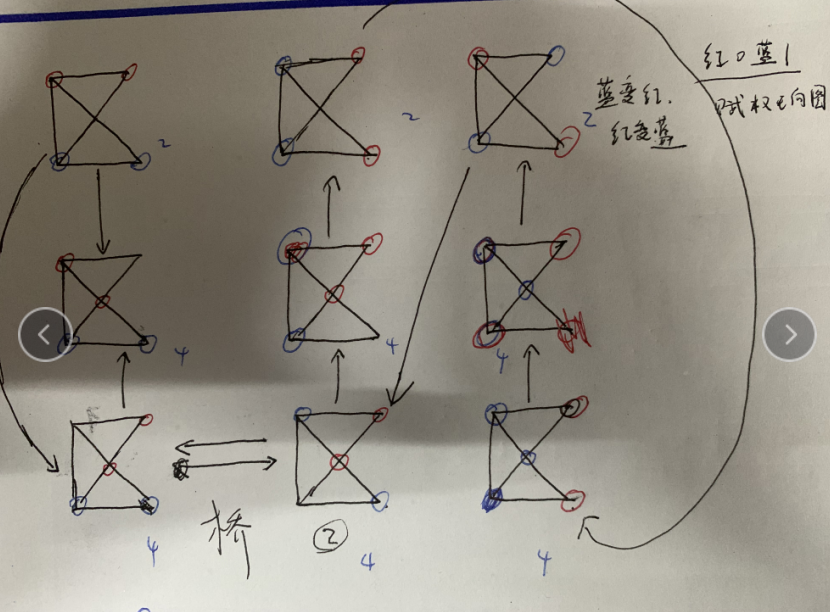 红0蓝1
赋权无向图
蓝变红.
红变蓝
2
2
2
4
4
4
桥
②
4
4
4